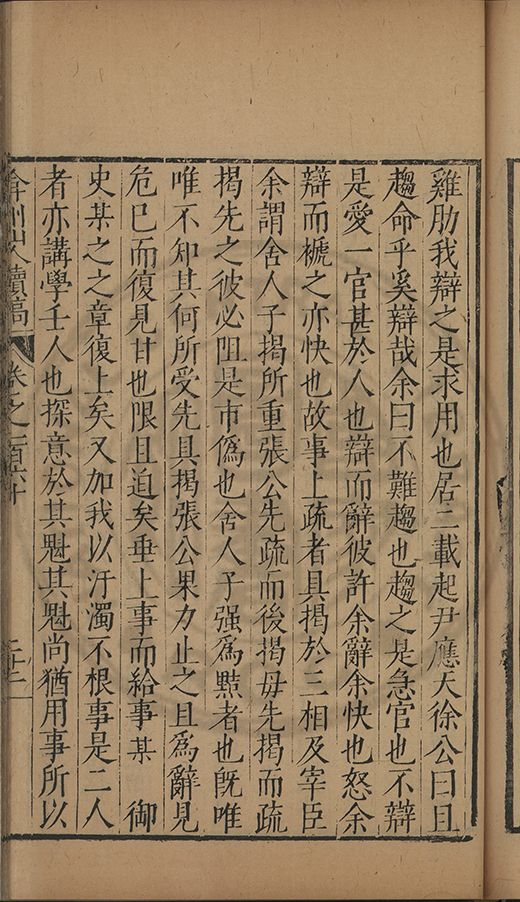 雞肋我辯之是求用也居二載起尹應天徐公曰且
趨命乎奚辯哉余曰不難趨也趨之是急官也不辯
是愛一官甚於人也辯而辭彼許余辭余快也怒余
辯而褫之亦快也故事上疏者具揭於三相及宰臣
余謂舍人子揭所重張公先疏而後揭毋先揭而疏
揭先之彼必阻是市僞也舍人子强爲黠者也旣唯
唯不知其何所受先具揭張公果力止之且爲辭見
危已而復見甘也限且迫矣垂上事而給事某　御
史某之之章復上矣又加我以汙濁不根事是二人
者亦講學壬人也探意於其魁其魁尚猶用事所以
弇州山人續稿　卷之一百六十　二十二